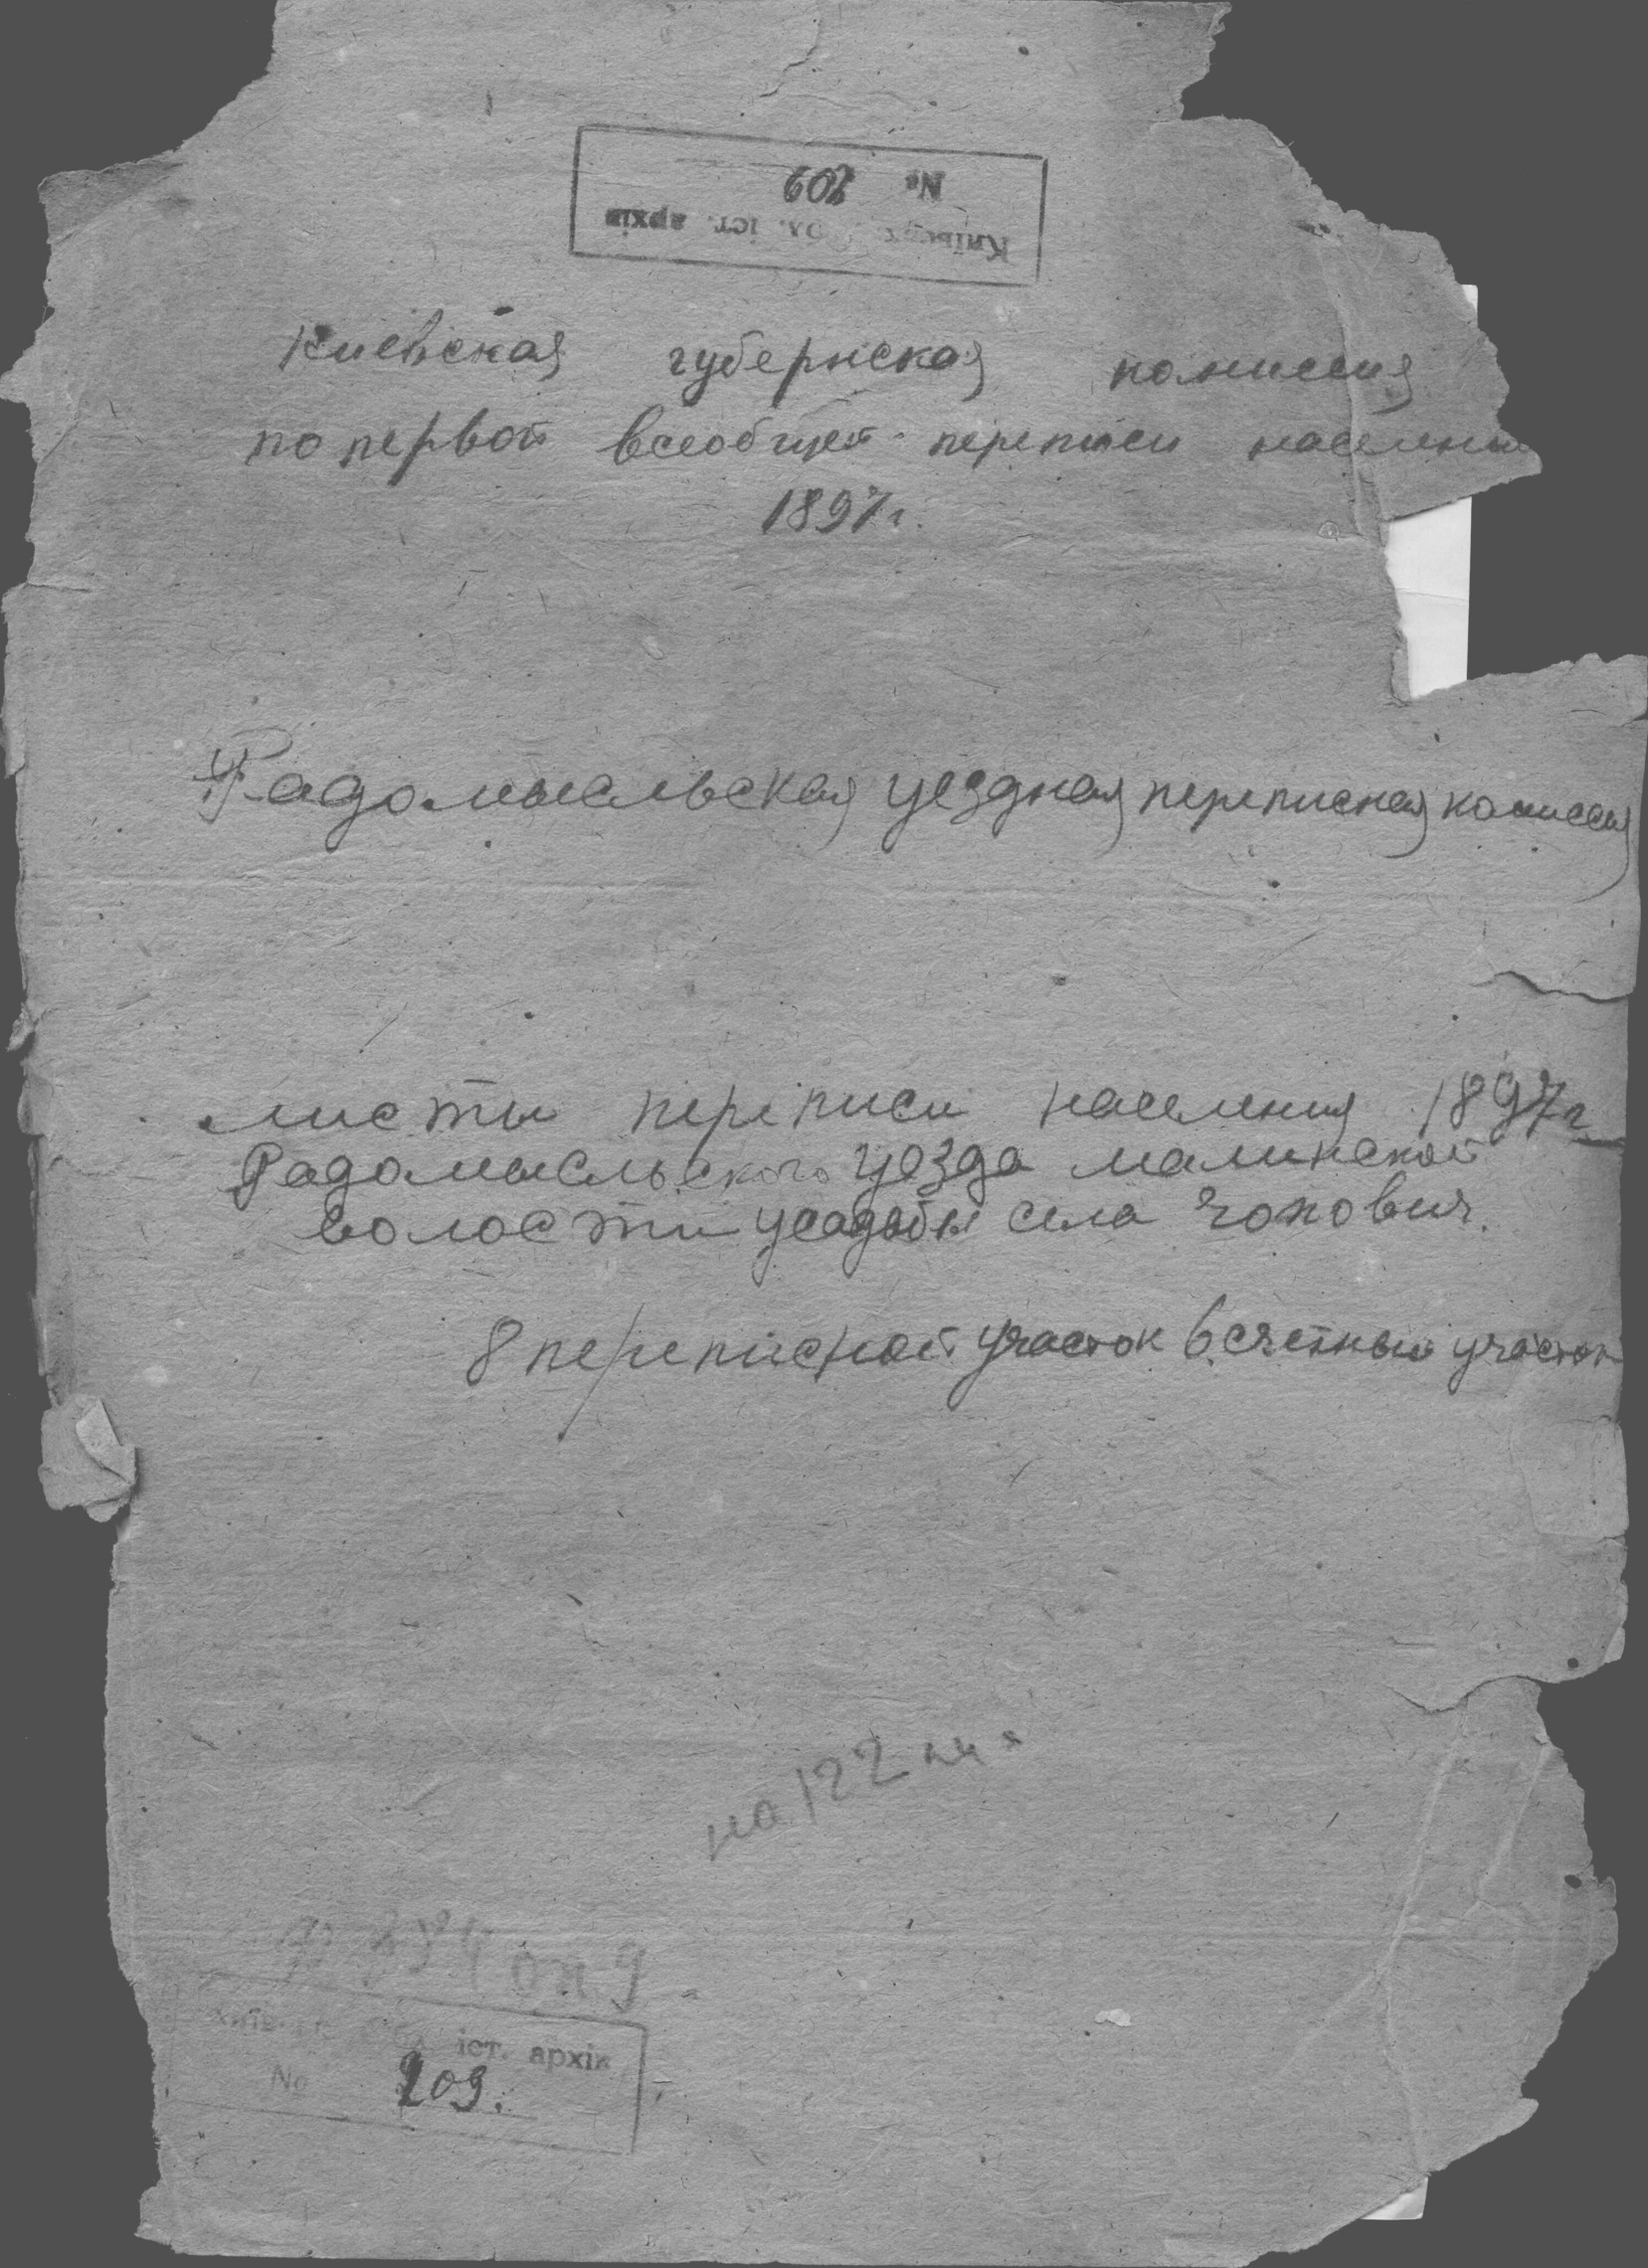 № 209
іст. архів
Киевская губернская комиссия
по первой всеобщей переписи населения
1897 г.
Радомысльская уездная переписная комиссия
листы переписи населения 1897 г
Радомысльского уезда малинской
волости усадьбы села Чопович.
8 переписной участок 6 счетный участок
на 122 лист
оп 9
іст. архів
№ 209.